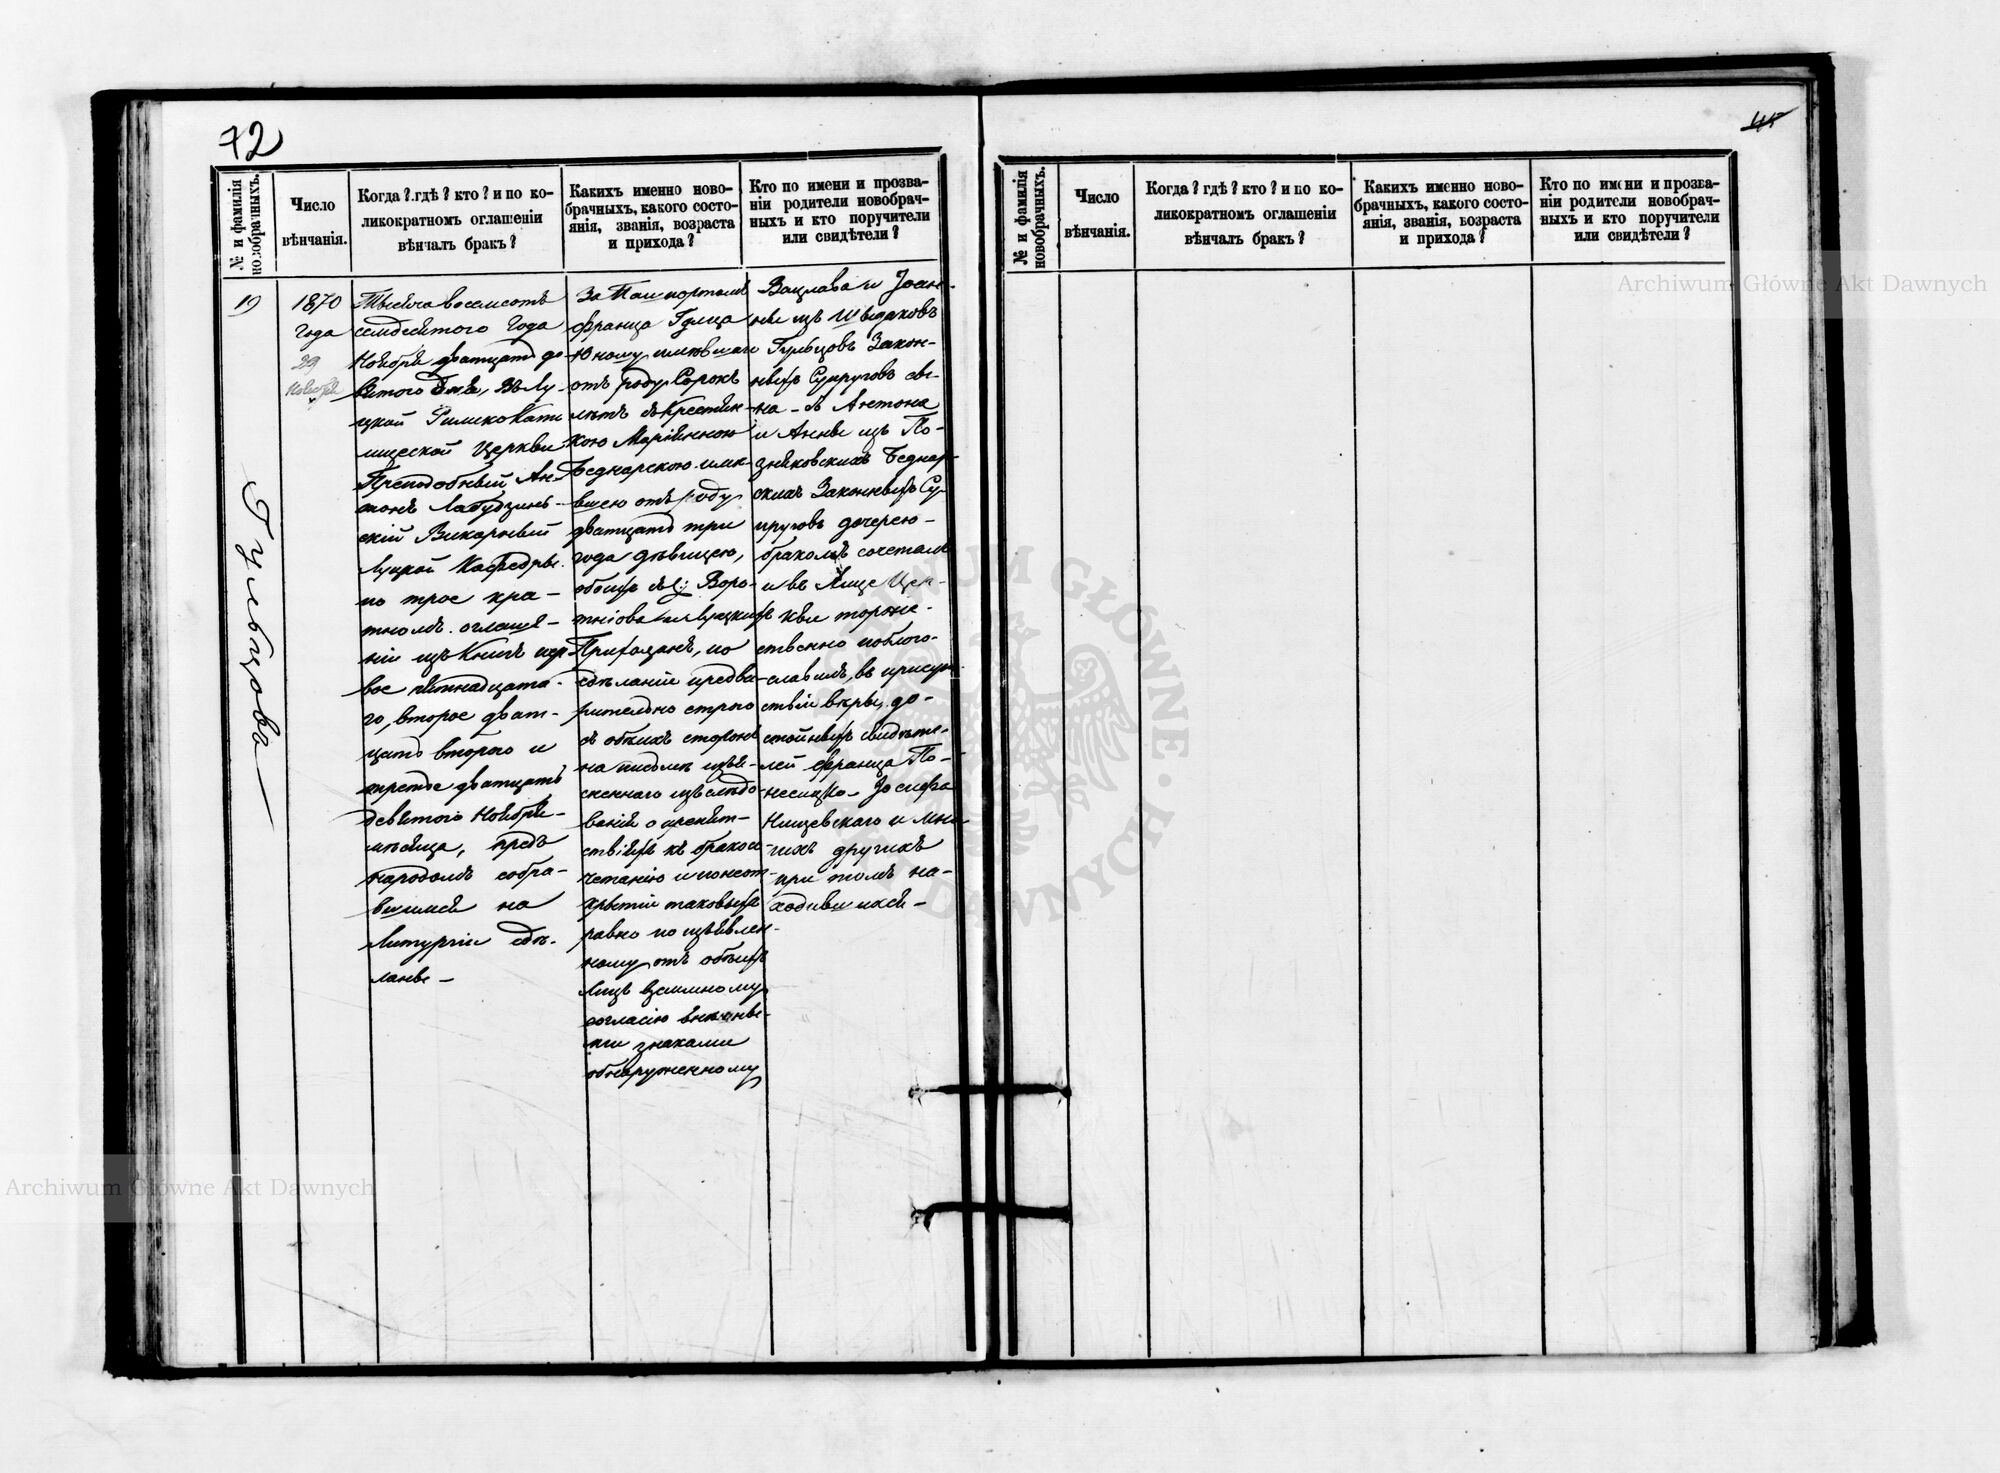 72
№ и фамилія новобрачныхъ.
Число
вѣнчанія.
Когда? гдѣ? кто? и по ко-
ликократномъ оглашеніи
вѣнчалъ бракъ?
Какихъ именно ново-
брачныхъ, какого состо-
янія, званія, возраста
и прихода?
Кто по имени и прозва-
ніи родители новобрач-
ныхъ и кто поручители
или свидѣтели?
19
Гульцова
1870
года
29
Ноября
Тысяча восемсотъ
семдесятого Года
Ноября дватцать де-
вятого дня, въ Лу-
цкой Римско Като
лической Церкви
Преподобный Ан-
тонъ Лабудзинь-
скій Викарный
Луцкой Кафедры.
по трое кра-
тномъ оглаше-
ніи изъ Книхъ пер
вое пятнадцата-
го, второе дват-
цать второго и
третое дватцать
девятого Ноября
мѣсяца, предъ
народомъ собра-
вшимся на
Литургіи сдѣ-
ланы -
За Паспортомъ
Франца Гулца
Юному имѣвшаго
отъ роду Сорокъ
лѣтъ съ Крестян-
кою Маріянною
Беднарскою имѣ-
вшею отъ роду
дватцать три
года дѣвицею,
обоихъ
Прихожанъ, по
сдѣланіи предва-
рительно строго
съ обоихъ сторонъ
на письмѣ изъя-
сненнаго изслѣдо-
ванія о препят-
ствіяхъ къ бракосо-
четанію и неот-
крытіи таковыхъ
равно по изъявлен-
ному отъ обоихъ
лицъ взаимному
согласію внѣшны-
ми знаками
обнаруженному
Вацлава и Іоан-
ны изъ Шведаковъ
Гульцовъ Закон-
ныхъ Супруговъ сы-
на - съ Антона
и Анны изъ По-
зняковскихъ Беднар-
скихъ Законныхъ Су-
пруговъ дочерею -
бракомъ сочеталъ
и въ Лице Цер-
кви торже-
ственно поблого-
славилъ, въ присут-
ствіи вѣры до-
стойныхъ свидѣте-
лей Франца По-
Іосифа
Нищевскаго и мно-
гихъ другихъ
при томъ на-
ходившихся -
№ и фамилія новобрачныхъ.
Число
вѣнчанія.
Когда? гдѣ? кто? и по ко-
ликократномъ оглашеніи
вѣнчалъ бракъ?
Какихъ именно ново-
брачныхъ, какого состо-
янія, званія, возраста
и прихода?
Кто по имени и прозва-
ніи родители новобрач-
ныхъ и кто поручители
или свидѣтели?
Archiwum Główne Akt Dawnych
Archiwum Główne Akt Dawnych